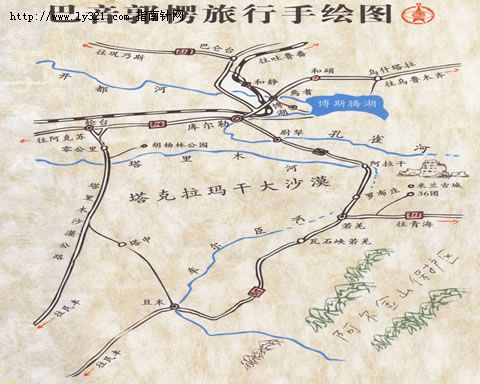 巴音郭楞旅行手绘图
http://www.ly321.com 指南针网
巴仑台
往巩乃斯
往吐鲁番
和静
和硕
乌什塔拉
往乌鲁木齐
焉耆
博湖
博斯腾湖
开都河
轮台
库尔勒
尉犁
孔雀河
往阿克苏
零公里
胡杨林公园
塔里木河
阿拉干
塔克拉玛干大沙漠
罗布庄
米兰古城
36团
若羌
往青海
瓦石峡若羌
塔里木沙漠公路
塔中
车尔臣河
且末
往民丰
往民丰
阿尔金山保护区